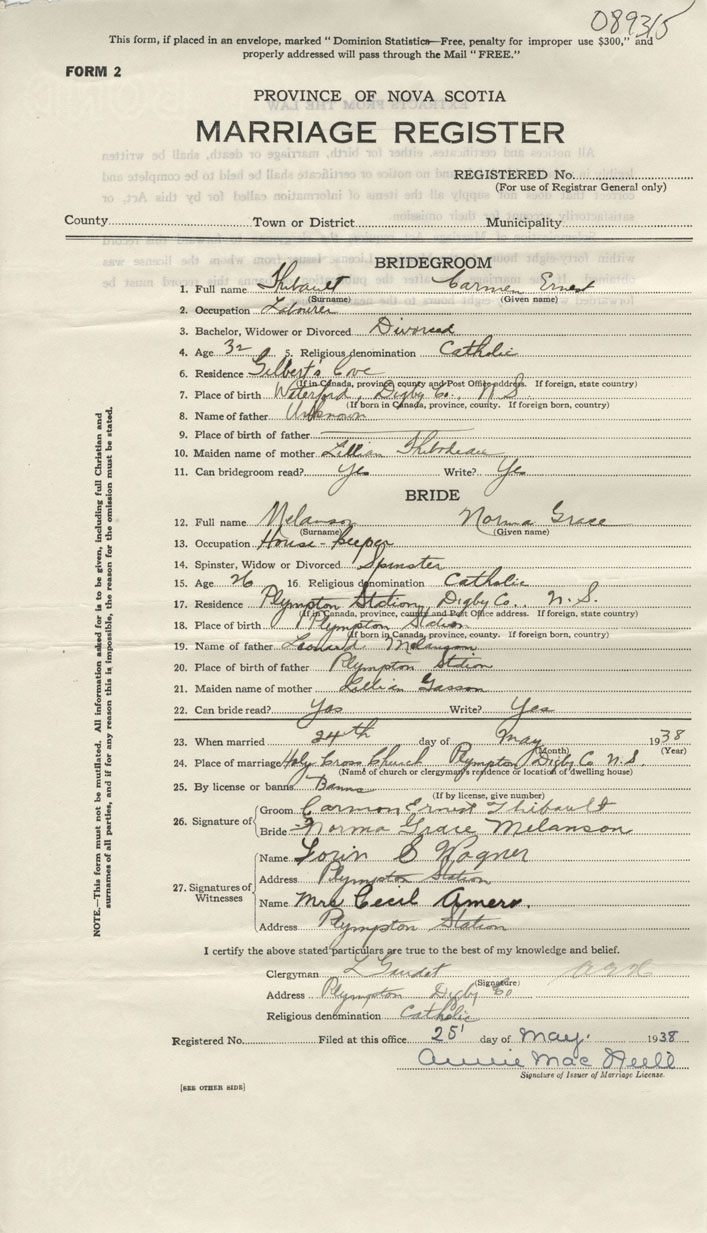 089315
This form, if placed in an envelope, marked "Dominion Statistics—Free, penalty for improper use $300," and
properly addressed will pass through the Mail "FREE."
FORM 2
PROVINCE OF NOVA SCOTIA
MARRIAGE REGISTER
REGISTERED No.
(For use of Registrar General only)
County Town or District Municipality
BRIDEGROOM
1. Full name Thibault Carmen Ernest
(Surname) (Given name)
2. Occupation Labourer
3. Bachelor, Widower or Divorced Divorced
4. Age 32 5. Religious denomination Catholic
6. Residence Gilbert's Cove
(If in Canada, province, county and Post Office address. If foreign, state country)
7. Place of birth Waterford, Digby Co., N.S.
(If born in Canada, province, county. If foreign, state country)
8. Name of father Unknown
9. Place of father
10. Maiden name of mother Lillian Thibodeau
11. Can bridegroom read? Yes Write? Yes
BRIDE
12. Full name Melanson Norma Grace
(Surname) (Given name)
13. Occupation House-keeper
14. Spinster, Widow or Divorced Spinster
15. Age 26 16. Religious denomination Catholic
17. Residence Plympton Station, Digby Co., N.S.
(If in Canada, province, county and Post Office address. If foreign, state country)
18. Place of birth Plympton Station
(If born in Canada, province, county. If foreign, state country)
19. Name of father Leonard Melanson
20. Place of birth of father Plympton Station
21. Maiden name of mother Lillian Gasson
22. Can bride read? Yes Write? Yes
23. When married 24th day of May 1938
(Month) (Year)
24. Place of marriage Holy Cross Church Plympton Digby Co N.S.
(Name of church or clergyman's residence or location of dwelling house)
25. By license or banns Banns
(If by license, give number)
26. Signature of Groom Carmon Ernest Thibault
Bride Norma Grace Melanson
27. Signatures of Witnesses Name Lorin S Wagner
Address Plympton Station
Name Mrs Cecil Amero.
Address Plympton Station
I certify the above stated particulars are true to the best of my knowledge and belief.
Clergyman L Gaudet
(Signature)
Address Plympton Digby Co
Religious denomination Catholic
Registered No. Filed at this office 25 day of May. 1938
Annie Mac Neill
Signature of Issuer of Marriage License.
[SEE OTHER SIDE]
NOTE.—This form must not be mutilated. All information asked for is to be given, including full Christian and
surnames of all parties, and if for any reason this is impossible, the reason for the omission must be stated.